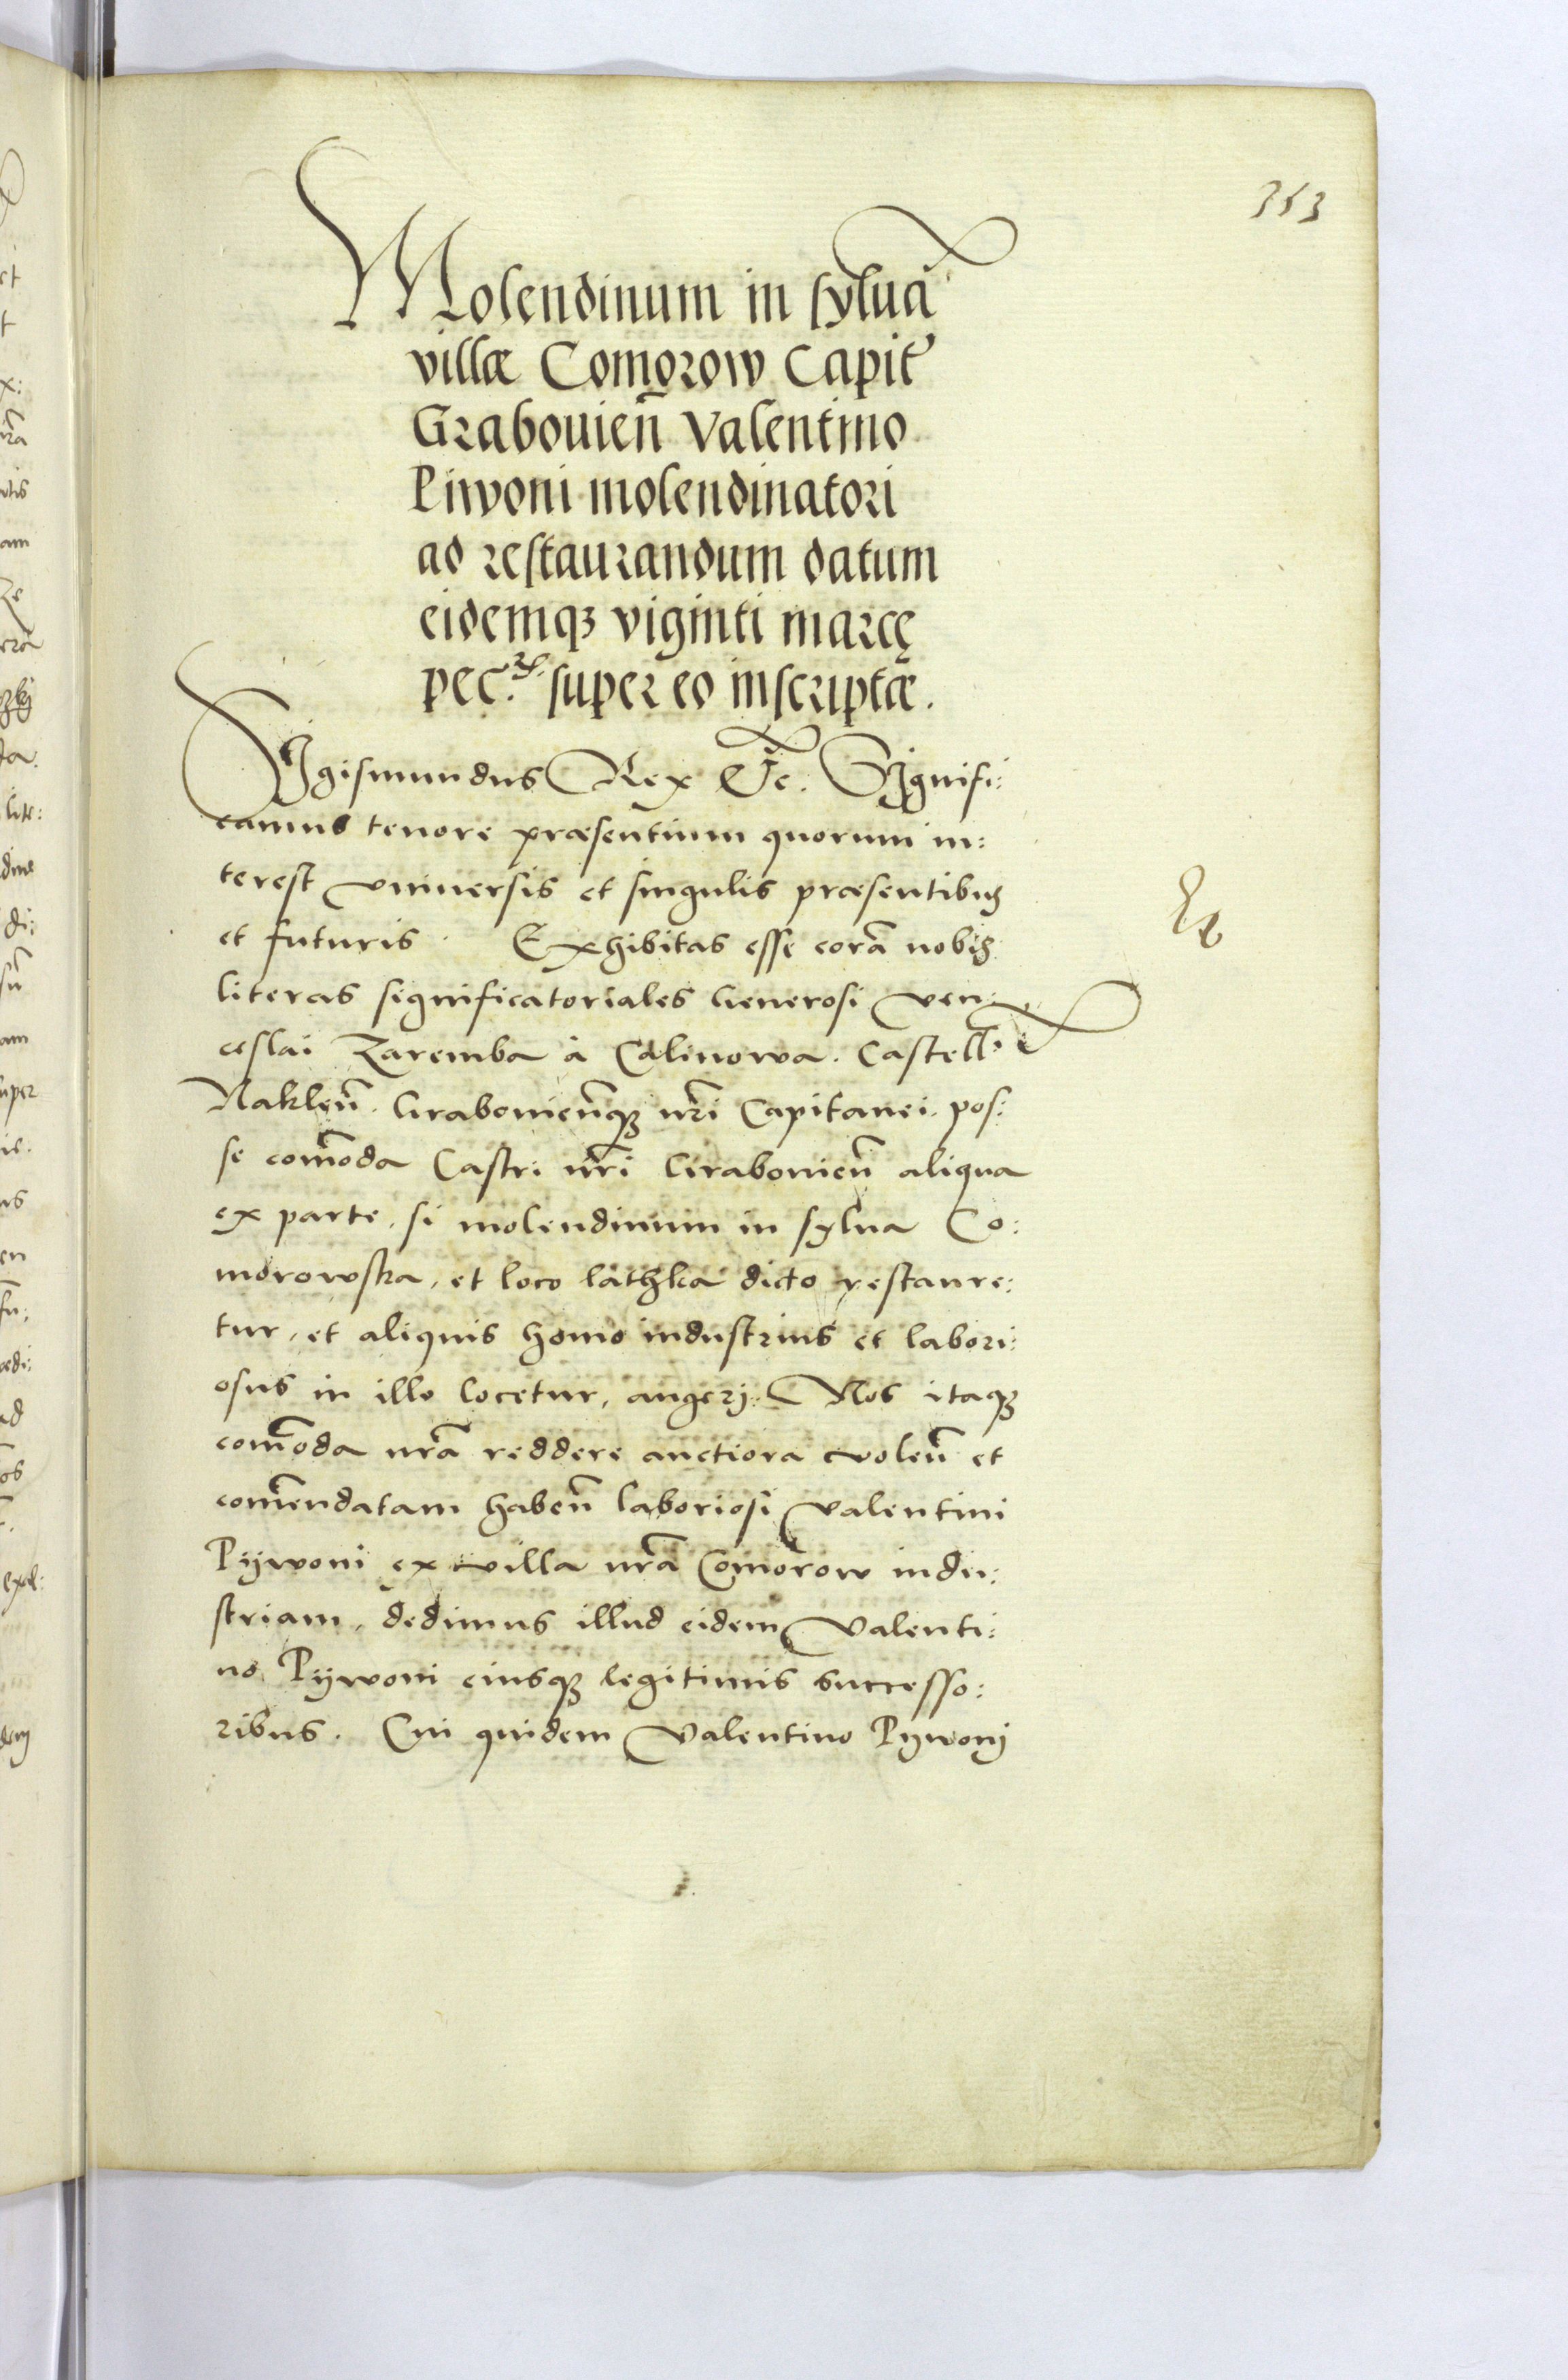 353
Molendinum in sylua
villæ Comorow Capit
Grabouień Valentino
Piwoni molendinatori
ad restaurandum datum
eidemqꝫ viginti marcę
pec. super eo inscriptæ.
Sigismundus Rex Etc. Signifi:
camus tenore præsentium quorum in:
terest vniuersis et singulis præsentibus
et futuris. Exhibitas esse corā nobis
literas significatoriales Generosi Ven:
ceslai Zaremba à Calinowa. Castell
Nakleñ. Grabouieñqꝫ nr̃i Capitanei. pos:
se com̃oda Castri nr̃i Grabouień aliqua
ex parte, si molendinum in sylua Co:
morowska, et loco lathka dicto restaure:
tur, et aliquis homo industrius et labori:
osus in illo locetur, augerj. Nos itaqꝫ
com̃oda nr̃a reddere auctiora voleñ et
com̃endatam habeñ laboriosi Valentini
Pijwoni ex villa nr̃a Comorow indu:
striam, dedimus illud eidem Valenti:
no Pijwoni eiusqꝫ legitimis successo:
ribus. Cui quidem Valentino Pijwonj